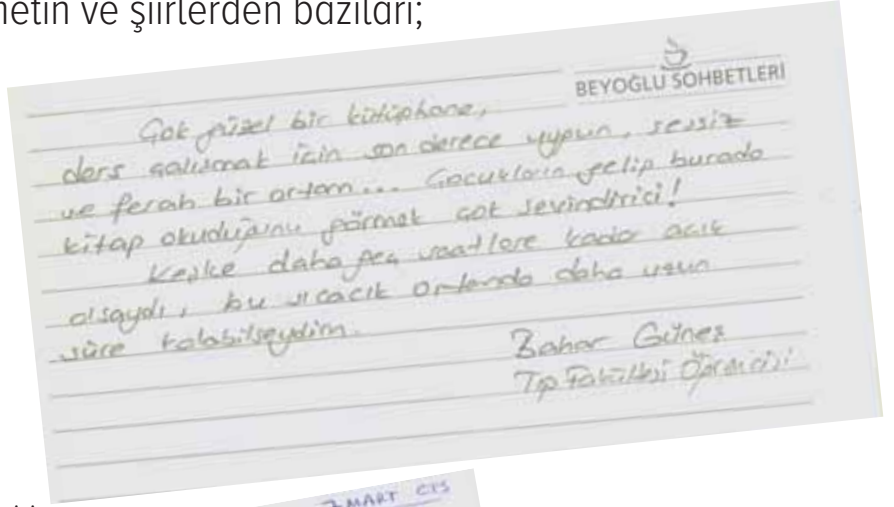 metin ve şiirlerden bazıları;
BEYOĞLU SOHBETLERİ
Çok güzel bir kütüphane,
ders çalışmak için son derece uygun, sessiz
ve ferah bir ortam... Çocukların gelip burada
kitap okuduğunu görmek çok sevindirici!
Keşke daha geç saatlere kadar açık
olsaydı, bu sıcacık ortamda daha uzun
süre kalabilseydim.
Bahar Güneş
Tıp Fakültesi Öğrencisi
MART CTS